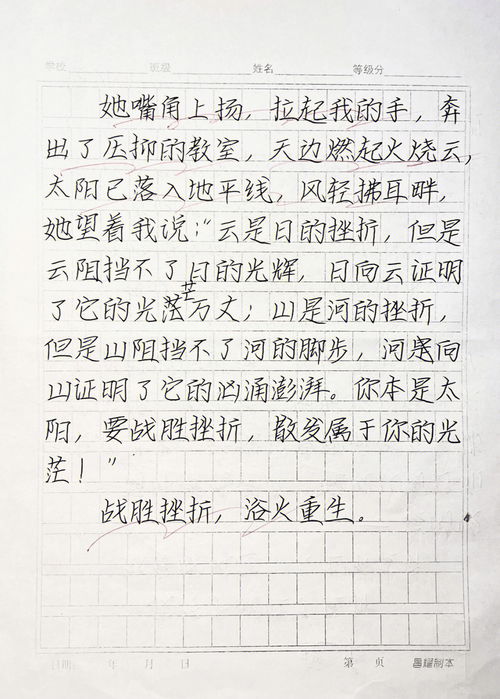 学校 班级 姓名 等级分
她嘴角上扬，拉起我的手，奔
出了压抑的教室，天边燃起火烧云，
太阳已落入地平线，风轻拂耳畔，
她望着我说：“云是日的挫折，但是
云阻挡不了日的光辉，日向云证明
了它的光芒万丈；山是河的挫折，
但是山阻挡不了河的脚步，河向
山证明了它的汹涌澎湃。你本是太
阳，要战胜挫折，散发属于你的光
芒！”
战胜挫折，浴火重生。
日期 年 月 日 第 页 昌耀制本